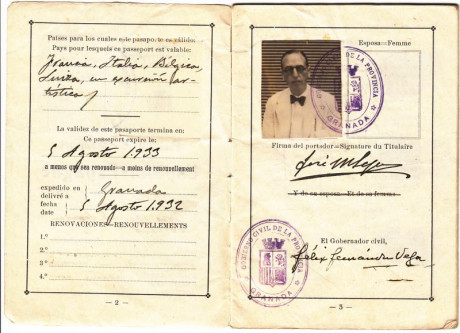 Países para los cuales este pasaporte es válido:
Pays pour lesquels ce passeport est valable:
Francia, Italia, Bélgica,
Suiza, en excursión ar-
tística
La validez de este pasaporte termina en:
Ce passeport expire le:
5 Agosto 1933
a menos que sea renovado—a moins de renouvellement
expedido en
delivré a
Granada
fecha
date
5 Agosto 1932
RENOVACIONES—RENOUVELLEMENTS
1.º
2.º
3.º
4.º
— 2 —
Esposa—Femme
DE LA PROVINCIA
GRANADA
Firma del portador—Signature du Titulaire
José
Y de su esposa—Et de sa femme
GOBIERNO CIVIL DE LA PROVINCIA
GRANADA
El Gobernador civil,
Félix Fernández Vega
— 3 —